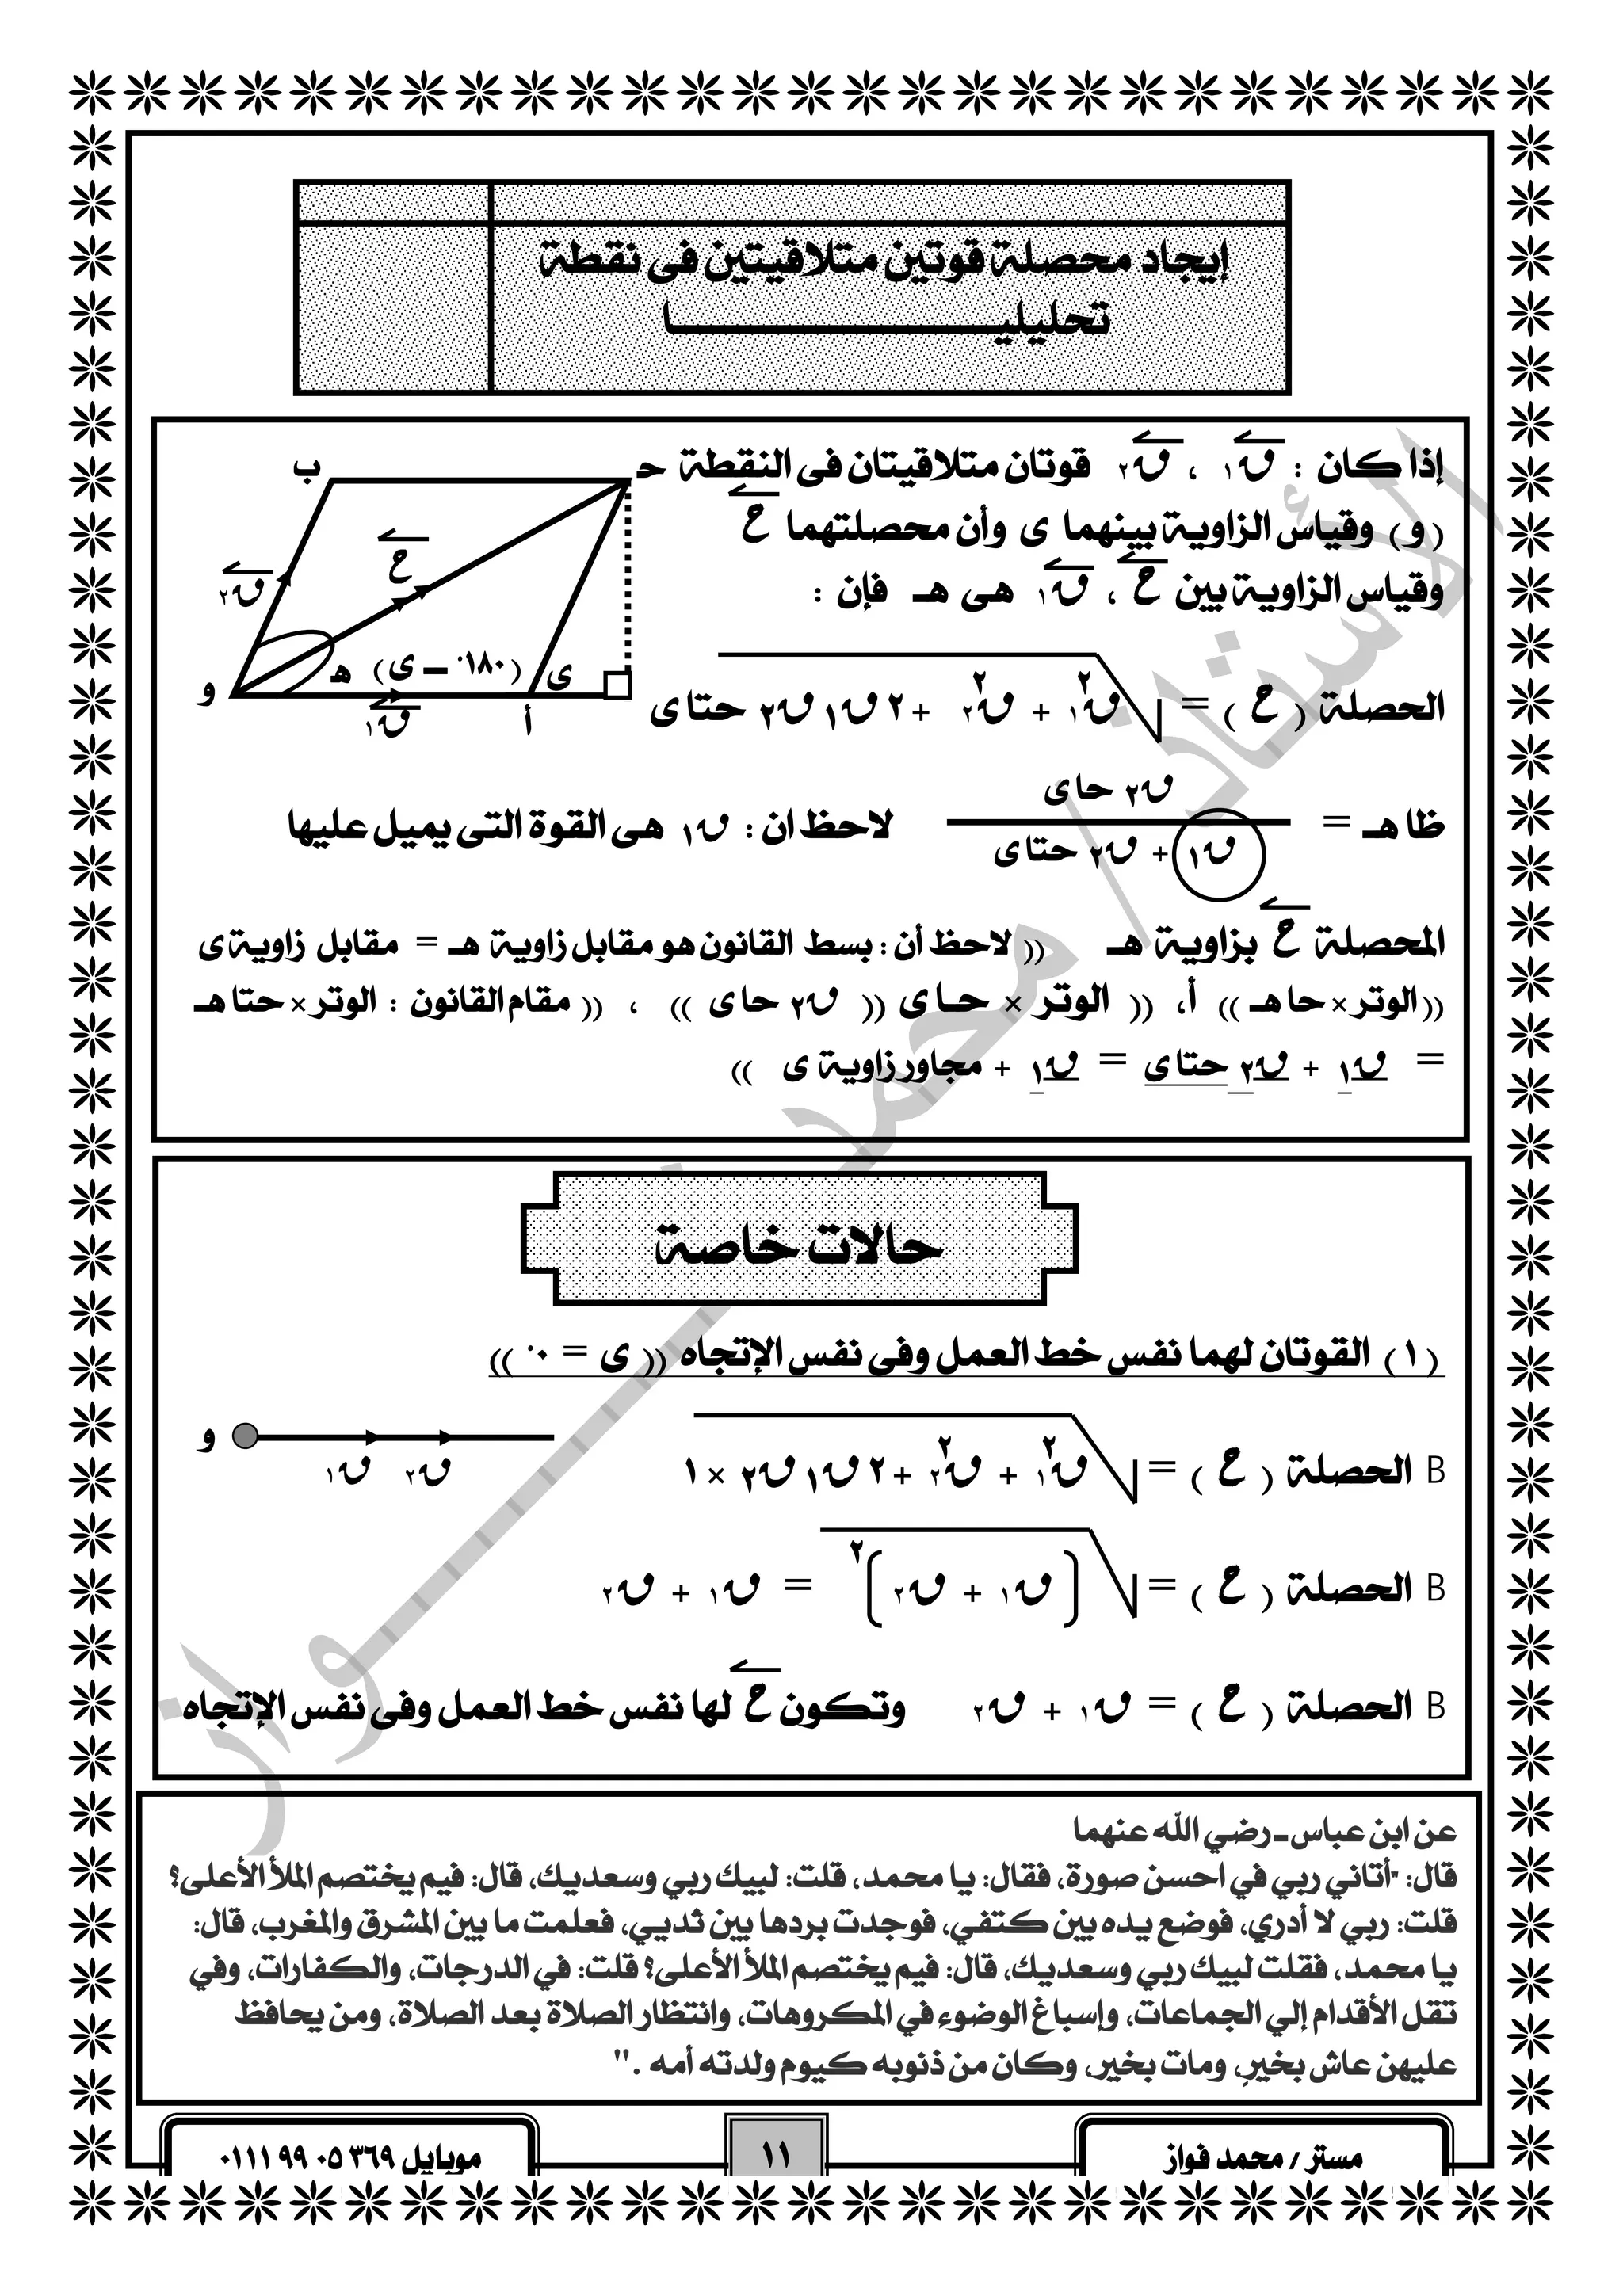 إيجاد محصلة قوتين متلاقيتين فى نقطة
تحليليـــــــــــــــــا
إذا كان : ق١ ، ق٢ قوتان متلاقيتان فى النقطة
(و) وقياس الزاوية بينهما ى وأن محصلتهما ح
وقياس الزاوية بين ح ، ق١ هى هـ فإن :
ب
حـ
ح
ق٢
و
هـ
(١٨٠° ــ ى)
ى
ق١
أ
الحصلة ( ح ) = √ ق١٢ + ق٢٢ + ٢ ق١ ق٢ حتا ى
ظا هـ = ق٢ حا ى / ق١ + ق٢ حتا ى لاحظ ان : ق١ هى القوة التى يميل عليها
المحصلة ح بزاوية هـ (( لاحظ أن : بسط القانون هو مقابل زاوية هـ = مقابل زاوية ى
(( الوتر × حا هـ )) أ، (( الوتر × حـا ى (( ق٢ حا ى )) ، (( مقام القانون : الوتر × حتا هـ
= ق١ + ق٢ حتا ى = ق١ + مجاور زاوية ى ))
حالات خاصة
(١) القوتان لهما نفس خط العمل وفى نفس الإتجاه (( ى = ٠° ))
B الحصلة ( ح ) = √ ق١٢ + ق٢٢ + ٢ ق١ ق٢ × ١
و
ق١ ق٢
B الحصلة ( ح ) = √ (ق١ + ق٢)٢ = ق١ + ق٢
B الحصلة ( ح ) = ق١ + ق٢ وتكون ح لها نفس خط العمل وفى نفس الإتجاه
عن ابن عباس ـ رضي الله عنهما
قال: "أتاني ربي في احسن صورة، فقال: يا محمد، قلت: لبيك ربي وسعديك، قال: فيم يختصم الملأ الأعلى؟
قلت: ربي لا أدري، فوضع يده بين كتفي، فوجدت بردها بين ثديي، فعلمت ما بين المشرق والمغرب، قال:
يا محمد، فقلت لبيك ربي وسعديك، قال: فيم يختصم الملأ الأعلى؟ قلت: في الدرجات، والكفارات، وفي
تقل الأقدام إلي الجماعات، وإسباغ الوضوء في المكروهات، وانتظار الصلاة بعد الصلاة، ومن يحافظ
عليهن عاش بخيرٍ، ومات بخير، وكان من ذنوبه كيوم ولدته أمه ."
مستر / محمد فواز
١١
موبايل ٣٦٩ ٠٥ ٩٩ ٠١١١
الأستاذ / محمد فـــــواز